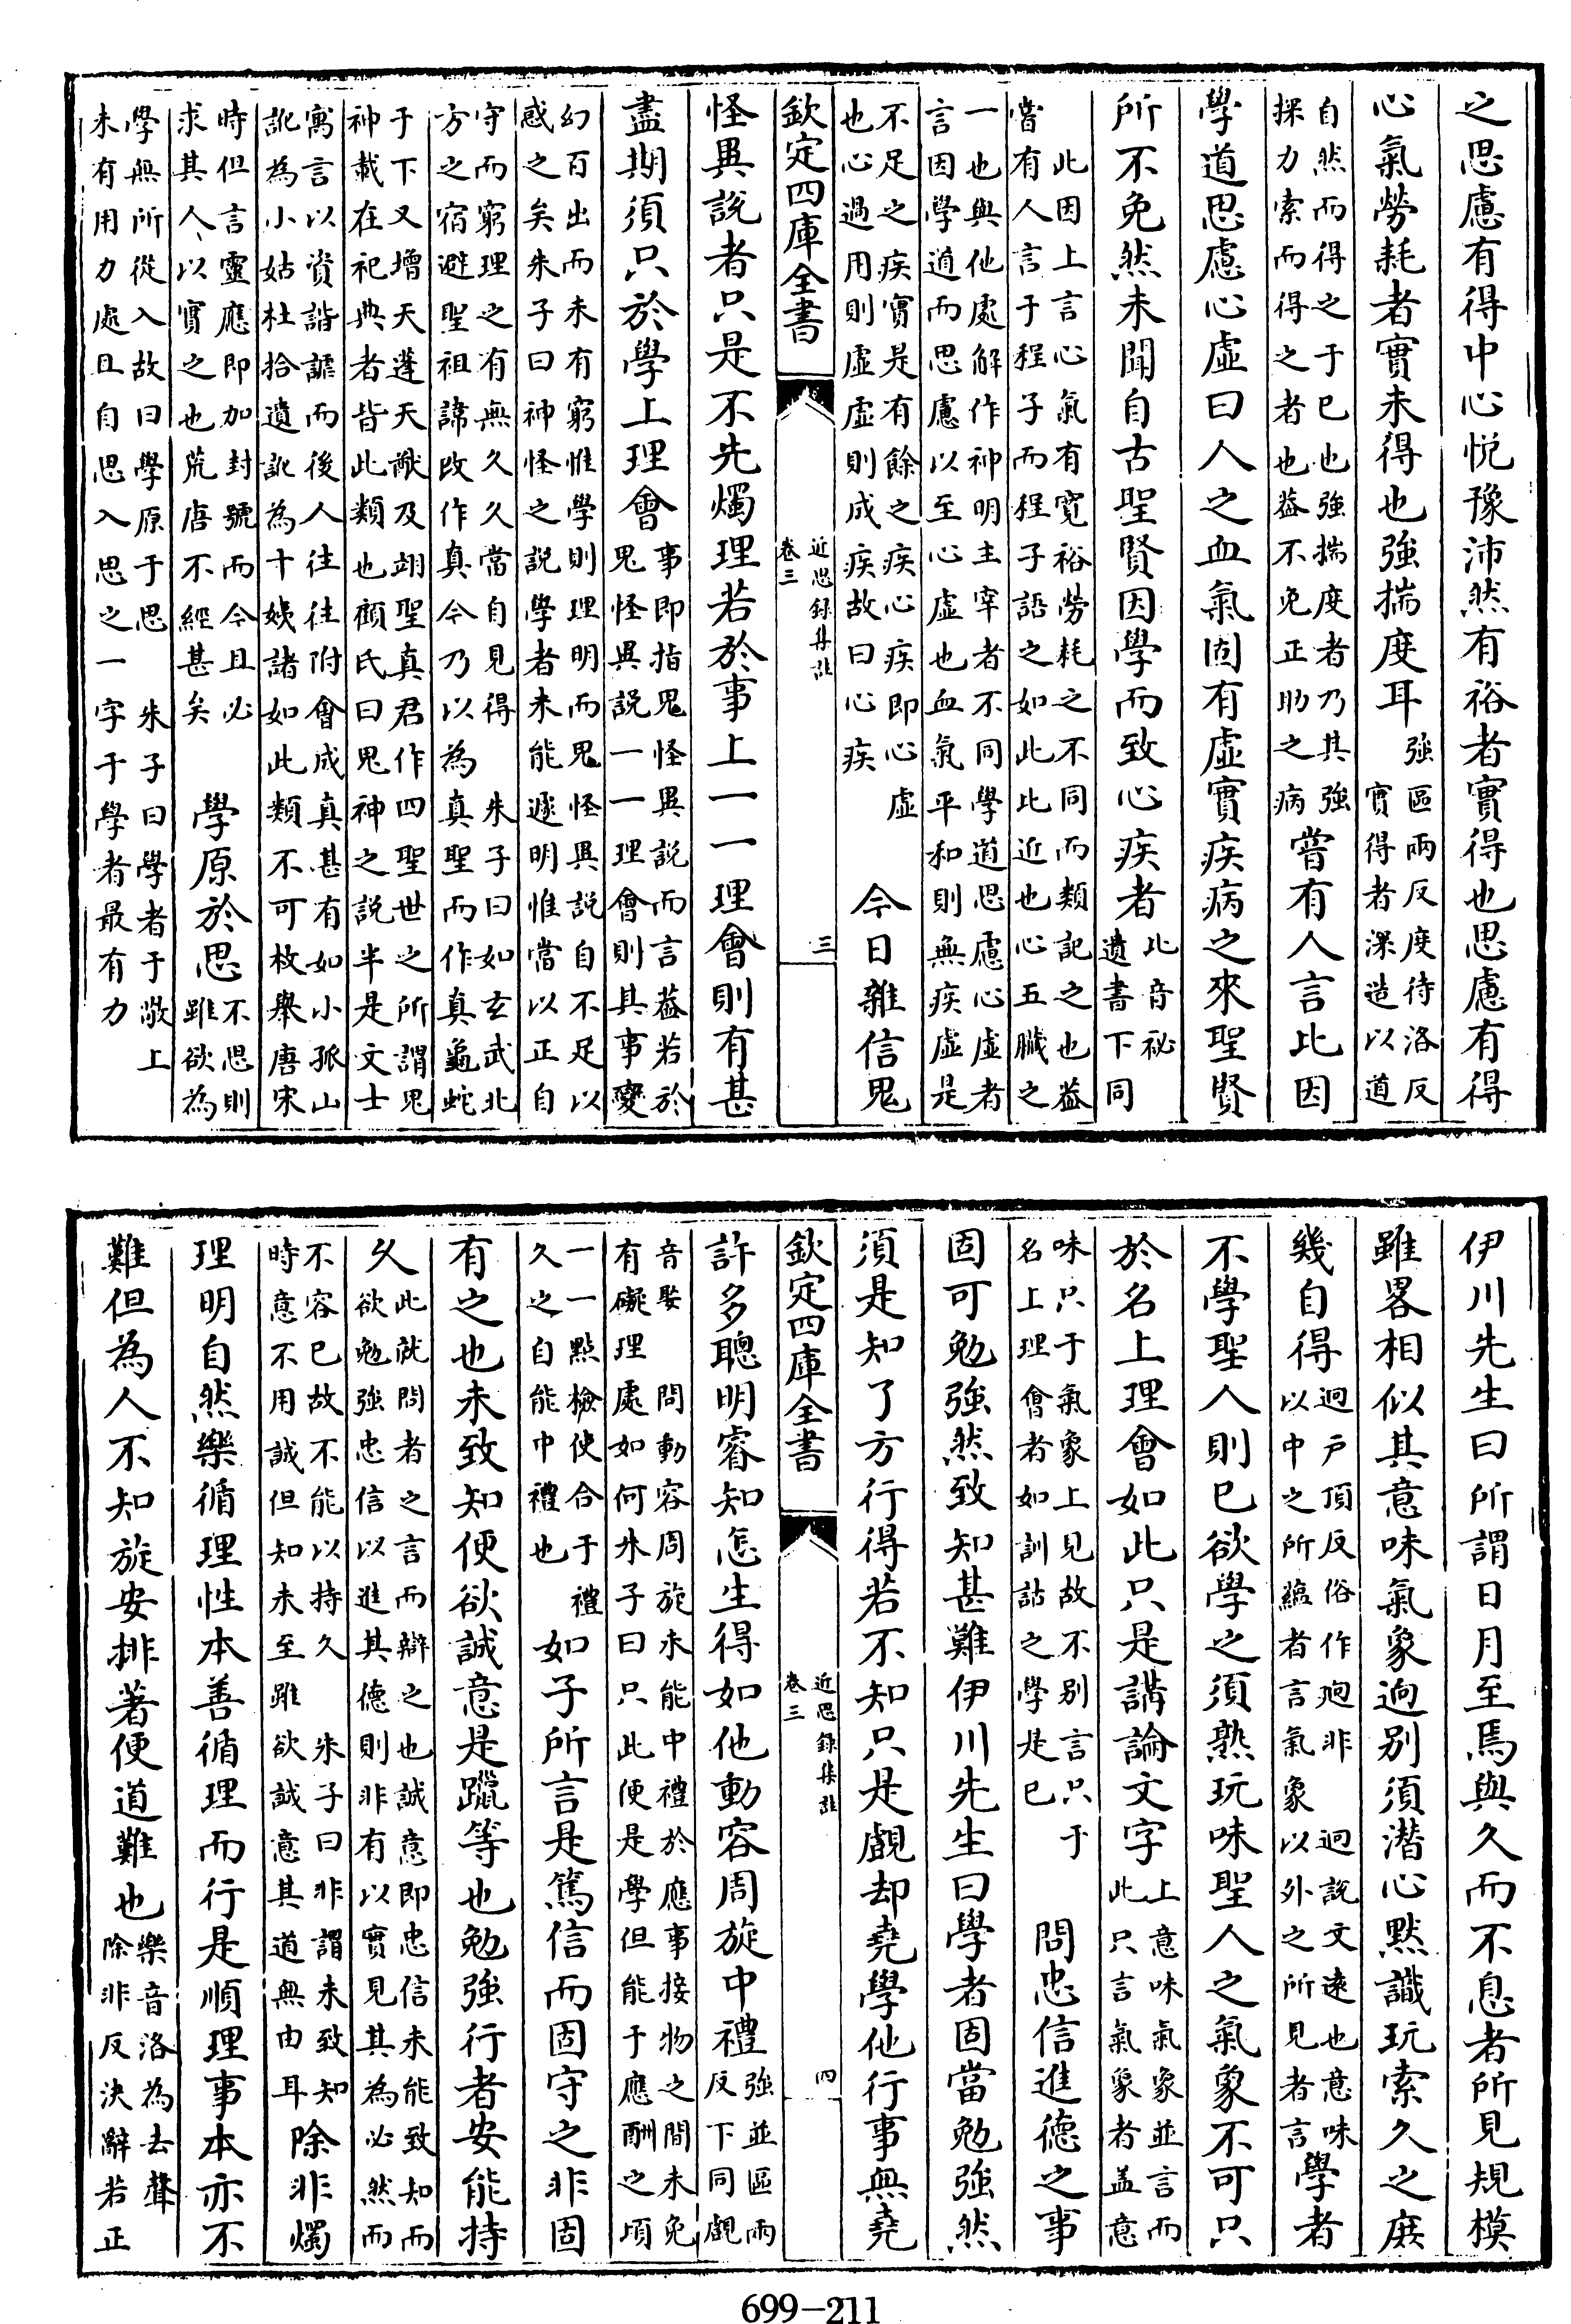 之思慮有得中心悅豫沛然有裕者實得也思慮有得
心氣勞耗者實未得也強揣度耳強區兩反度待洛反實得者深造以道
自然而得之于已也強揣度者乃其強探力索而得之者也葢不免正助之病嘗有人言比因
學道思慮心虛曰人之血氣固有虛實疾病之來聖賢
所不免然未聞自古聖賢因學而致心疾者比音祕遺書下同
此因上言心氣有寛裕勞耗之不同而類記之也葢嘗有人言于程子而程子語之如此比近也心五臟之
一也與他處解作神明主宰者不同學道思慮心虛者言因學道而思慮以至心虛也血氣平和則無疾虛是
不足之疾實是有餘之疾心疾即心虛也心過用則虛虛則成疾故曰心疾今日雜信鬼
欽定四庫全書 近思録集註卷三 三
怪異說者只是不先燭理若於事上一一理會則有甚
盡期須只於學上理會事即指鬼怪異說而言葢若於鬼怪異說一一理會則其事變
幻百出而未有窮惟學則理明而鬼怪異說自不足以惑之矣朱子曰神怪之說學者未能遽明惟當以正自
守而窮理之有無久久當自見得 朱子曰如玄武北方之宿避聖祖諱改作真今乃以為真聖而作真龜蛇
于下又增天蓬天猷及翊聖真君作四聖世之所謂鬼神載在祀典者皆此類也顧氏曰鬼神之說半是文士
寓言以資諧謔而後人往往附會成真甚有如小孤山訛為小姑杜拾遺訛為十姨諸如此類不可枚舉唐宋
時但言靈應即加封號而今且必求其人以實之也荒唐不經甚矣 學原於思不思則雖欲為
學無所從入故曰學原于思 朱子曰學者于敬上未有用力處且自思入思之一字于學者最有力
伊川先生曰所謂日月至焉與久而不息者所見規模
雖畧相似其意味氣象逈别須潛心黙識玩索久之庶
幾自得逈戸頂反俗作逈非 逈說文逺也意味以中之所蘊者言氣象以外之所見者言學者
不學聖人則已欲學之須熟玩味聖人之氣象不可只
於名上理會如此只是講論文字上意味氣象並言而此只言氣象者葢意
味只于氣象上見故不别言只于名上理會者如訓詁之學是已 問忠信進德之事
固可勉強然致知甚難伊川先生曰學者固當勉強然
須是知了方行得若不知只是覰却堯學他行事無堯
欽定四庫全書 近思録集註卷三 四
許多聰明睿知怎生得如他動容周旋中禮強並區兩反下同覰
音娶 問動容周旋未能中禮於應事接物之間未免有礙理處如何朱子曰只此便是學但能于應酬之頃
一一點檢使合于禮久之自能中禮也 如子所言是篤信而固守之非固
有之也未致知便欲誠意是躐等也勉強行者安能持
久此就問者之言而辯之也誠意即忠信未能致知而欲勉強忠信以進其德則非有以實見其為必然而
不容已故不能以持久 朱子曰非謂未致知時意不用誠但知未至雖欲誠意其道無由耳除非燭
理明自然樂循理性本善循理而行是順理事本亦不
難但為人不知旋安排著便道難也樂音洛為去聲除非反決辭若正